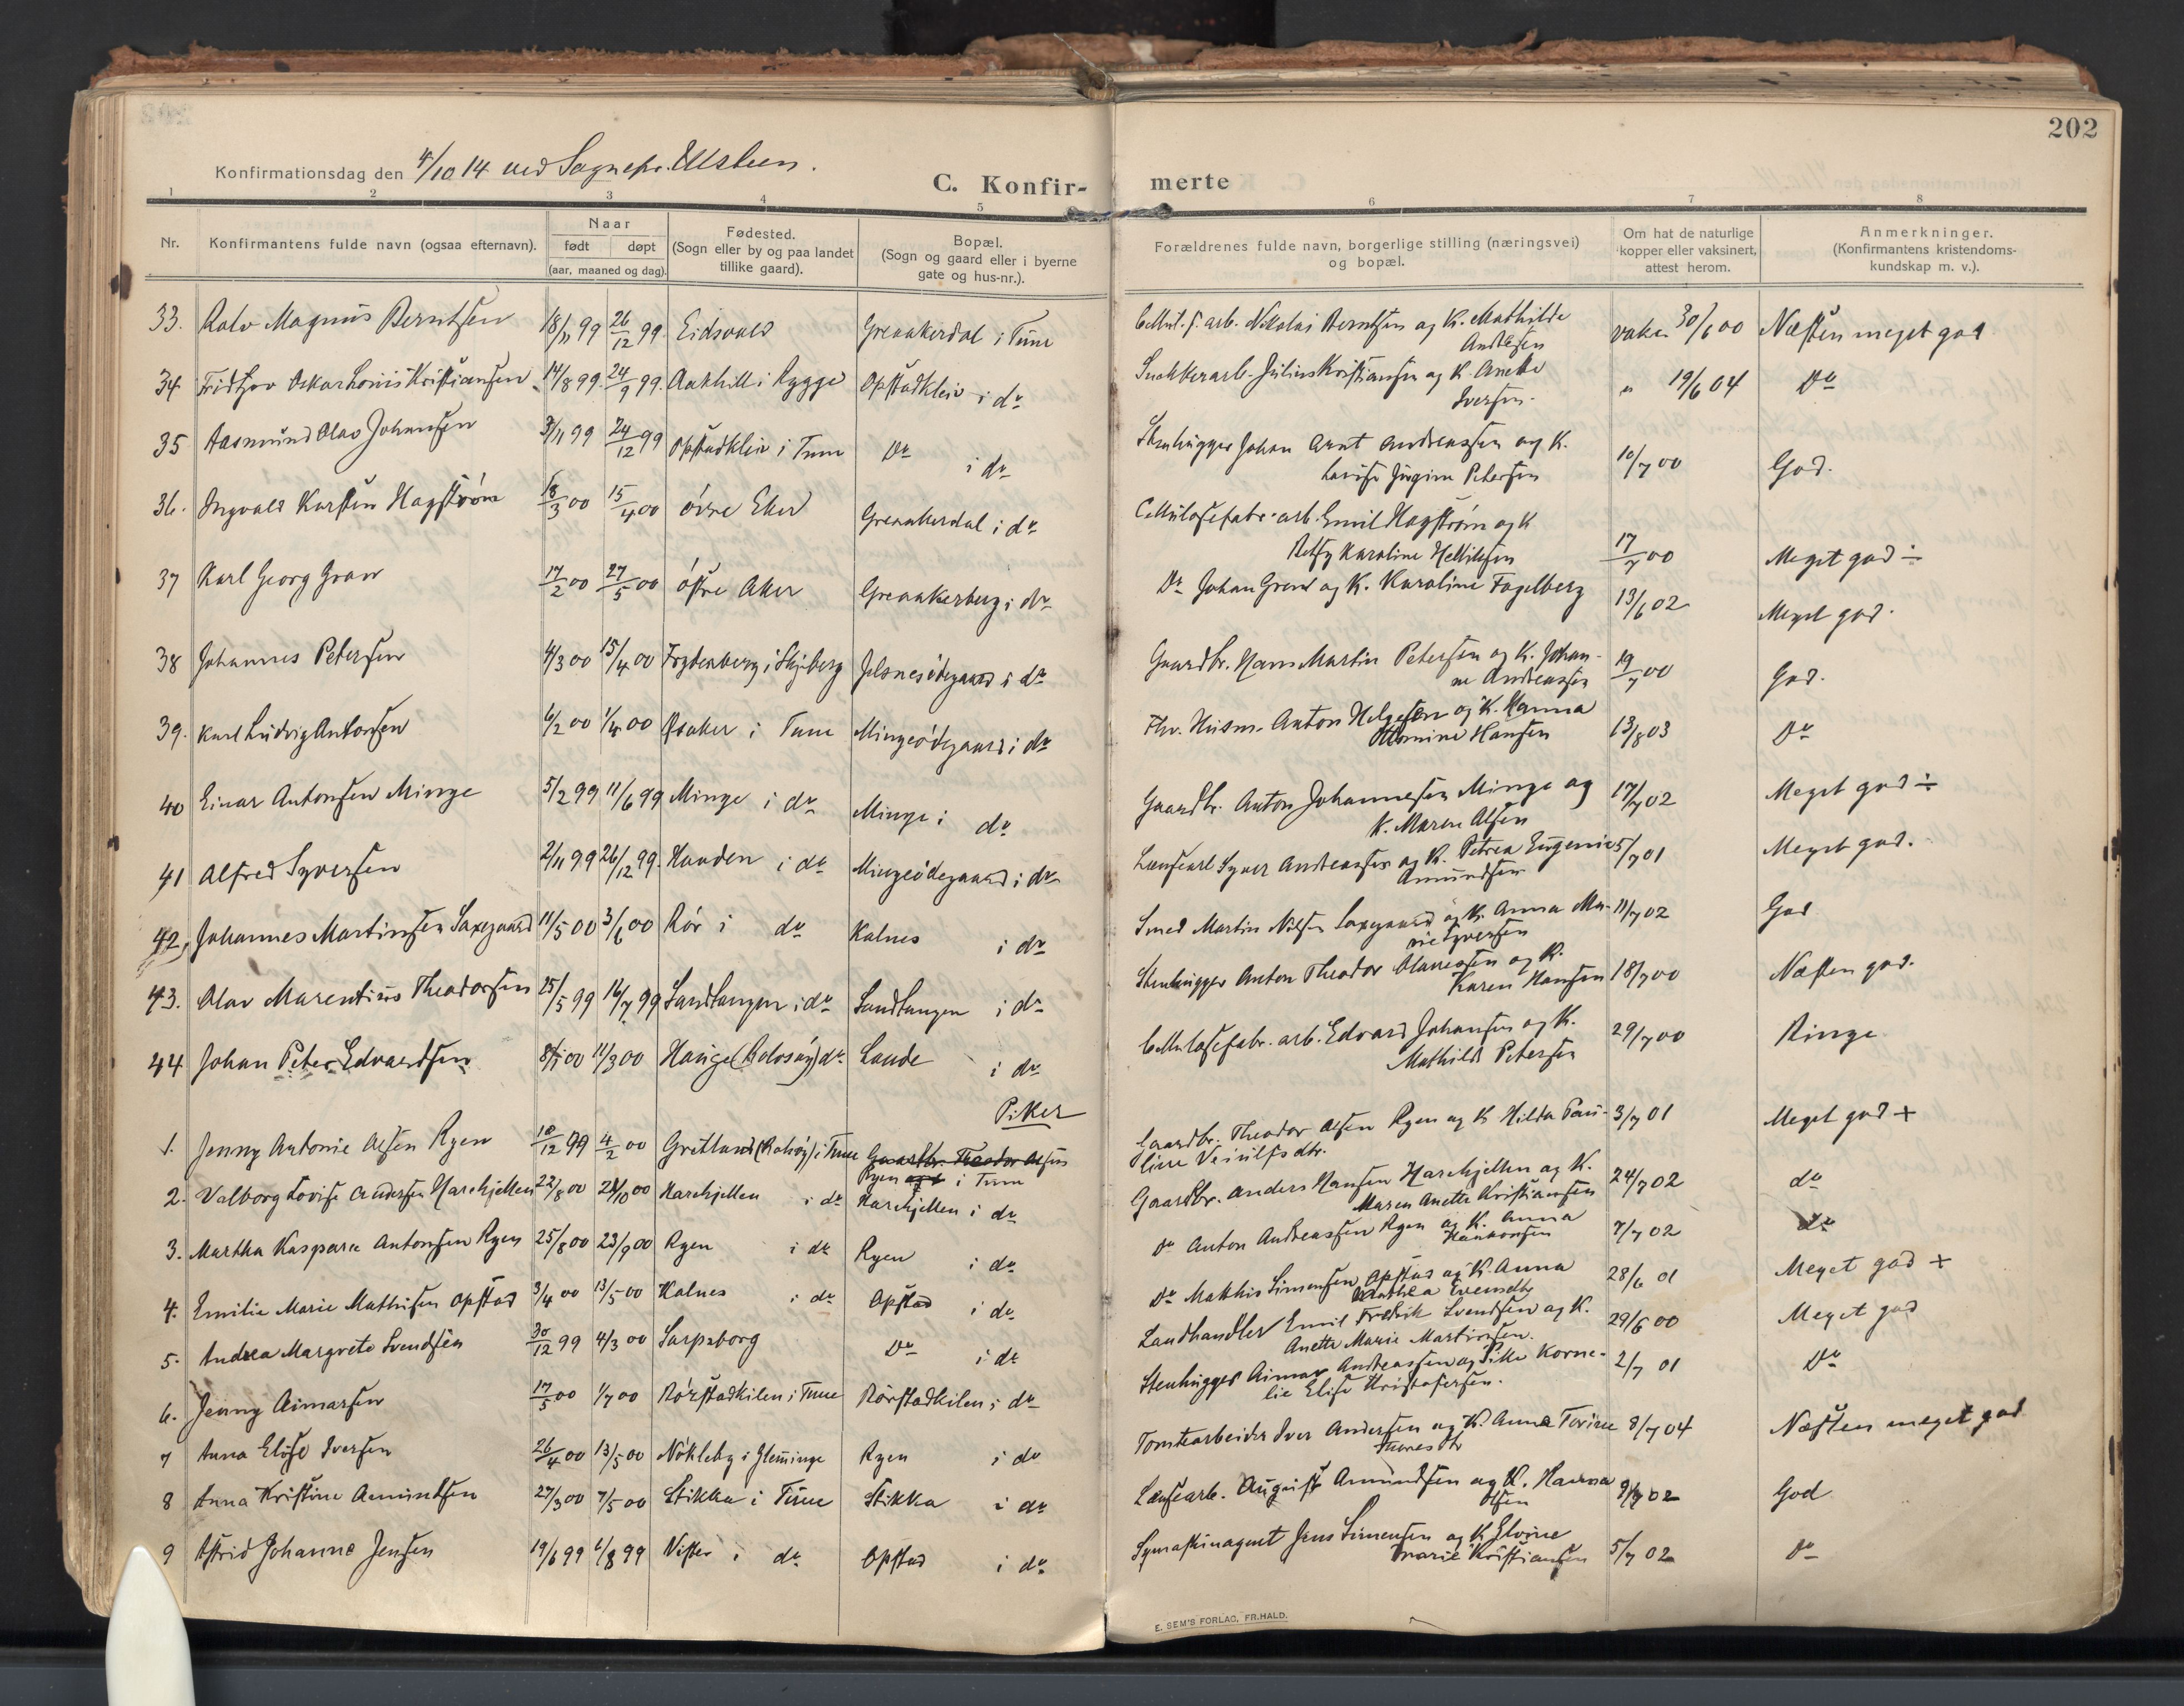 202
Konfirmationsdag den 4/10 14 ved Sognepr.
C. Konfir-
merte
1 2 3 4 5 6 7 8
Nr.
Konfirmantens fulde navn (ogsaa efternavn).
Naar
født døpt
(aar, maaned og dag).
Fødested.
(Sogn eller by og paa landet
tillike gaard).
Bopæl.
(Sogn og gaard eller i byerne
gate og hus-nr.).
Forældrenes fulde navn, borgerlige stilling (næringsvei)
og bopæl.
Om hat de naturlige
kopper eller vaksinert,
attest herom.
Anmerkninger.
(Konfirmantens kristendoms-
kundskap m. v.).
33. Rolv Magnus Berntsen 18/11 99 26/12 99. Eidsvold Greaakerdal i Tune Cellul. f. arb. Nikolai Berntsen og K. Mathilde vaks. 30/6 00 Næsten meget god
34 Fridtjov Oskar Louis Kristiansen 14/8 99. 24/9 99. i Rygge Opstadkleiv i do Julius Kristiansen og K. Anette
Iversen. " 19/6 04 Do
35 Aasmund Olav Johansen 3/11 99 24/12 99 Opstadkleiv i Tune Do i do Stenhugger Johan Arnt Andreassen og K.
Lovise Jørgine Petersen 10/7 00 God.
36. Ingvald Karsten Hagstrøm 18/3 00 15/4 00 øvre Eker Greaakerdal i do Cellulosefabr. arb. Emil Hagstrøm og K
Betsy Karoline 17/7 00 Meget god ÷
37 Karl Georg Gran 17/2 00 27/5 00 østre Aker Greaakerberg i do Do Johan og K. Karoline Fagelberg 13/6 02 Meget god.
38 Johannes Petersen 4/3 00 15/4 00 Frydenberg i Skjeberg Jelsnesødegaard i do Gaardbr. Hans Martin Petersen og K. Johan-
ne Andreassen 19/7 00 God.
39. Karl Ludvig Antonsen 6/2 00 1/4 00 i Tune Mingeødegaard i do Fhv. Husm. Anton Helgesen og K. Hanna
Hansen 13/8 03 Do
40 Einar Antonsen Minge 5/2 99 11/6 99 Minge i do Minge i do Gaardbr. Anton Johannesen Minge og
K. Maren Olsen 17/7 02 Meget god ÷
41 Alfred Syversen 2/11 99 26/12 99. Hauden i do Mingeødegaard i do Lænsearb Syver Andreassen og K. Petrea Eugenie
Amundsen 5/7 01 Meget god.
42, Johannes Martinsen Saxegaard 11/5 00 3/6 00 Rør i do Kalnes i do Smed Martin Nilsen Saxegaard og K. Anna Ma-
rie Syversen 11/7 02 God
43. Olav Marentius Theodorsen 25/5 99 16/7 99 Sandtangen i do Sandtangen i do Stenhugger Anton Theodor Olaussen og K.
Karen Hansen 18/7 00 Næsten god.
44 Johan Peter Edvardsen 8/1 00 11/3 00 Hauge (Rolvsøy) do Lande i do Cellulosefabr. arb. Edvard Johansen og K.
Mathilde Petersen 29/7 00 Ringe
Piker
1. Jenny Antonie Olsen Ryen 10/12 99 4/2 00 Gretland (Rolvsøy) i Tune Gaardbr. Theodor Olsen
Ryen i Tune Gaardbr. Theodor Olsen Ryen og K Hilda Pau-
line 3/7 01 Meget god +
2. Valborg Lovise Andersen Harekjellen 22/8 00 21/10 00 Harekjellen i do Harekjellen i do Gaardbr. Anders Hansen Harekjellen og K.
Maren Anette Kristiansen 24/7 02 do
3. Martha Kaspara Antonsen Ryen 25/8 00 23/9 00 Ryen i do Ryen i do Do Anton Andreassen Ryen og K. Anna
Haakonsen 7/7 02 do
4. Emilie Marie Mathisen Opstad 3/4 00 13/5 00 Kalnes i do Opstad i do Do Mathis Simensen Opstad og K. Anna
Mathea 28/6 01 Meget god +
5. Andrea Margrete Svendsen 30/12 99 4/3 00 Sarpsborg Do i do Landhandler Emil Fredrik Svendsen og K.
Anette Marie Martinsen. 29/6 00 Meget god
6. Jenny Aimarsen 17/5 00 1/7 00 Rørstadkilen i Tune Rørstadkilen i do Stenhugger Aimar Andreassen og Pike Korne-
lie Elise Kristofersen. 2/7 01 Do
7 Anna Elise Iversen 26/4 00 13/5 00 Nøkleby i Glemminge Ryen i do Tomtearbeider Iver Andersen og K. Anna Tovine 8/7 04 Næsten meget god
8 Anna Kristine Amundsen 27/3 00 7/5 00 Stikka i Tune Stikka i do Lænsearb. August Amundsen og K. Hanna
Olsen 9/7 02 God
9 Astrid Johanne Jensen 19/6 99 6/8 99 Vister i do Opstad i do Symaskinagent Jens Simensen og K Elvine
Marie Kristiansen 5/7 02 Do
E. SEM'S FORLAG, FR.HALD.